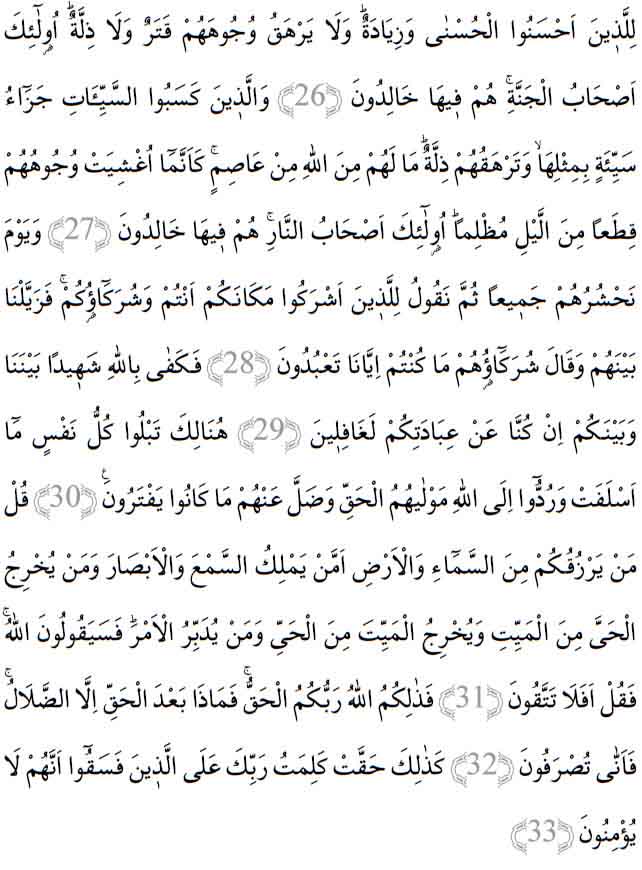 لِلَّذٖينَ اَحْسَنُوا الْحُسْنٰى وَزِيَادَةٌؕ وَلَا يَرْهَقُ وُجُوهَهُمْ قَتَرٌ وَلَا ذِلَّةٌؕ اُو۬لٰٓئِكَ
اَصْحَابُ الْجَنَّةِۚ هُمْ فٖيهَا خَالِدُونَ ﴿26﴾ وَالَّذٖينَ كَسَبُوا السَّيِّـَٔاتِ جَزَٓاءُ
سَيِّئَةٍ بِمِثْلِهَاۙ وَتَرْهَقُهُمْ ذِلَّةٌؕ مَا لَهُمْ مِنَ اللّٰهِ مِنْ عَاصِمٍۚ كَاَنَّمَٓا اُغْشِيَتْ وُجُوهُهُمْ
قِطَعاً مِنَ الَّيْلِ مُظْلِماًؕ اُو۬لٰٓئِكَ اَصْحَابُ النَّارِۚ هُمْ فٖيهَا خَالِدُونَ ﴿27﴾ وَيَوْمَ
نَحْشُرُهُمْ جَمٖيعاً ثُمَّ نَقُولُ لِلَّذٖينَ اَشْرَكُوا مَكَانَكُمْ اَنْتُمْ وَشُرَكَٓاؤُ۬كُمْۚ فَزَيَّلْنَا
بَيْنَهُمْ وَقَالَ شُرَكَٓاؤُ۬هُمْ مَا كُنْتُمْ اِيَّانَا تَعْبُدُونَ ﴿28﴾ فَكَفٰى بِاللّٰهِ شَهٖيدًا بَيْنَنَا
وَبَيْنَكُمْ اِنْ كُنَّا عَنْ عِبَادَتِكُمْ لَغَافِلٖينَ ﴿29﴾ هُنَالِكَ تَبْلُوا كُلُّ نَفْسٍ مَٓا
اَسْلَفَتْ وَرُدُّٓوا اِلَى اللّٰهِ مَوْلٰيهُمُ الْحَقِّ وَضَلَّ عَنْهُمْ مَا كَانُوا يَفْتَرُونَࣖ ﴿30﴾ قُلْ
مَنْ يَرْزُقُكُمْ مِنَ السَّمَٓاءِ وَالْاَرْضِ اَمَّنْ يَمْلِكُ السَّمْعَ وَالْاَبْصَارَ وَمَنْ يُخْرِجُ
الْحَىَّ مِنَ الْمَيِّتِ وَيُخْرِجُ الْمَيِّتَ مِنَ الْحَىِّ وَمَنْ يُدَبِّرُ الْاَمْرَؕ فَسَيَقُولُونَ اللّٰهُۚ
فَقُلْ اَفَلَا تَتَّقُونَ ﴿31﴾ فَذٰلِكُمُ اللّٰهُ رَبُّكُمُ الْحَقُّۚ فَمَاذَا بَعْدَ الْحَقِّ اِلَّا الضَّلَالُۚ
فَاَنّٰى تُصْرَفُونَ ﴿32﴾ كَذٰلِكَ حَقَّتْ كَلِمَتُ رَبِّكَ عَلَى الَّذٖينَ فَسَقُٓوا اَنَّهُمْ لَا
يُؤْمِنُونَ ﴿33﴾